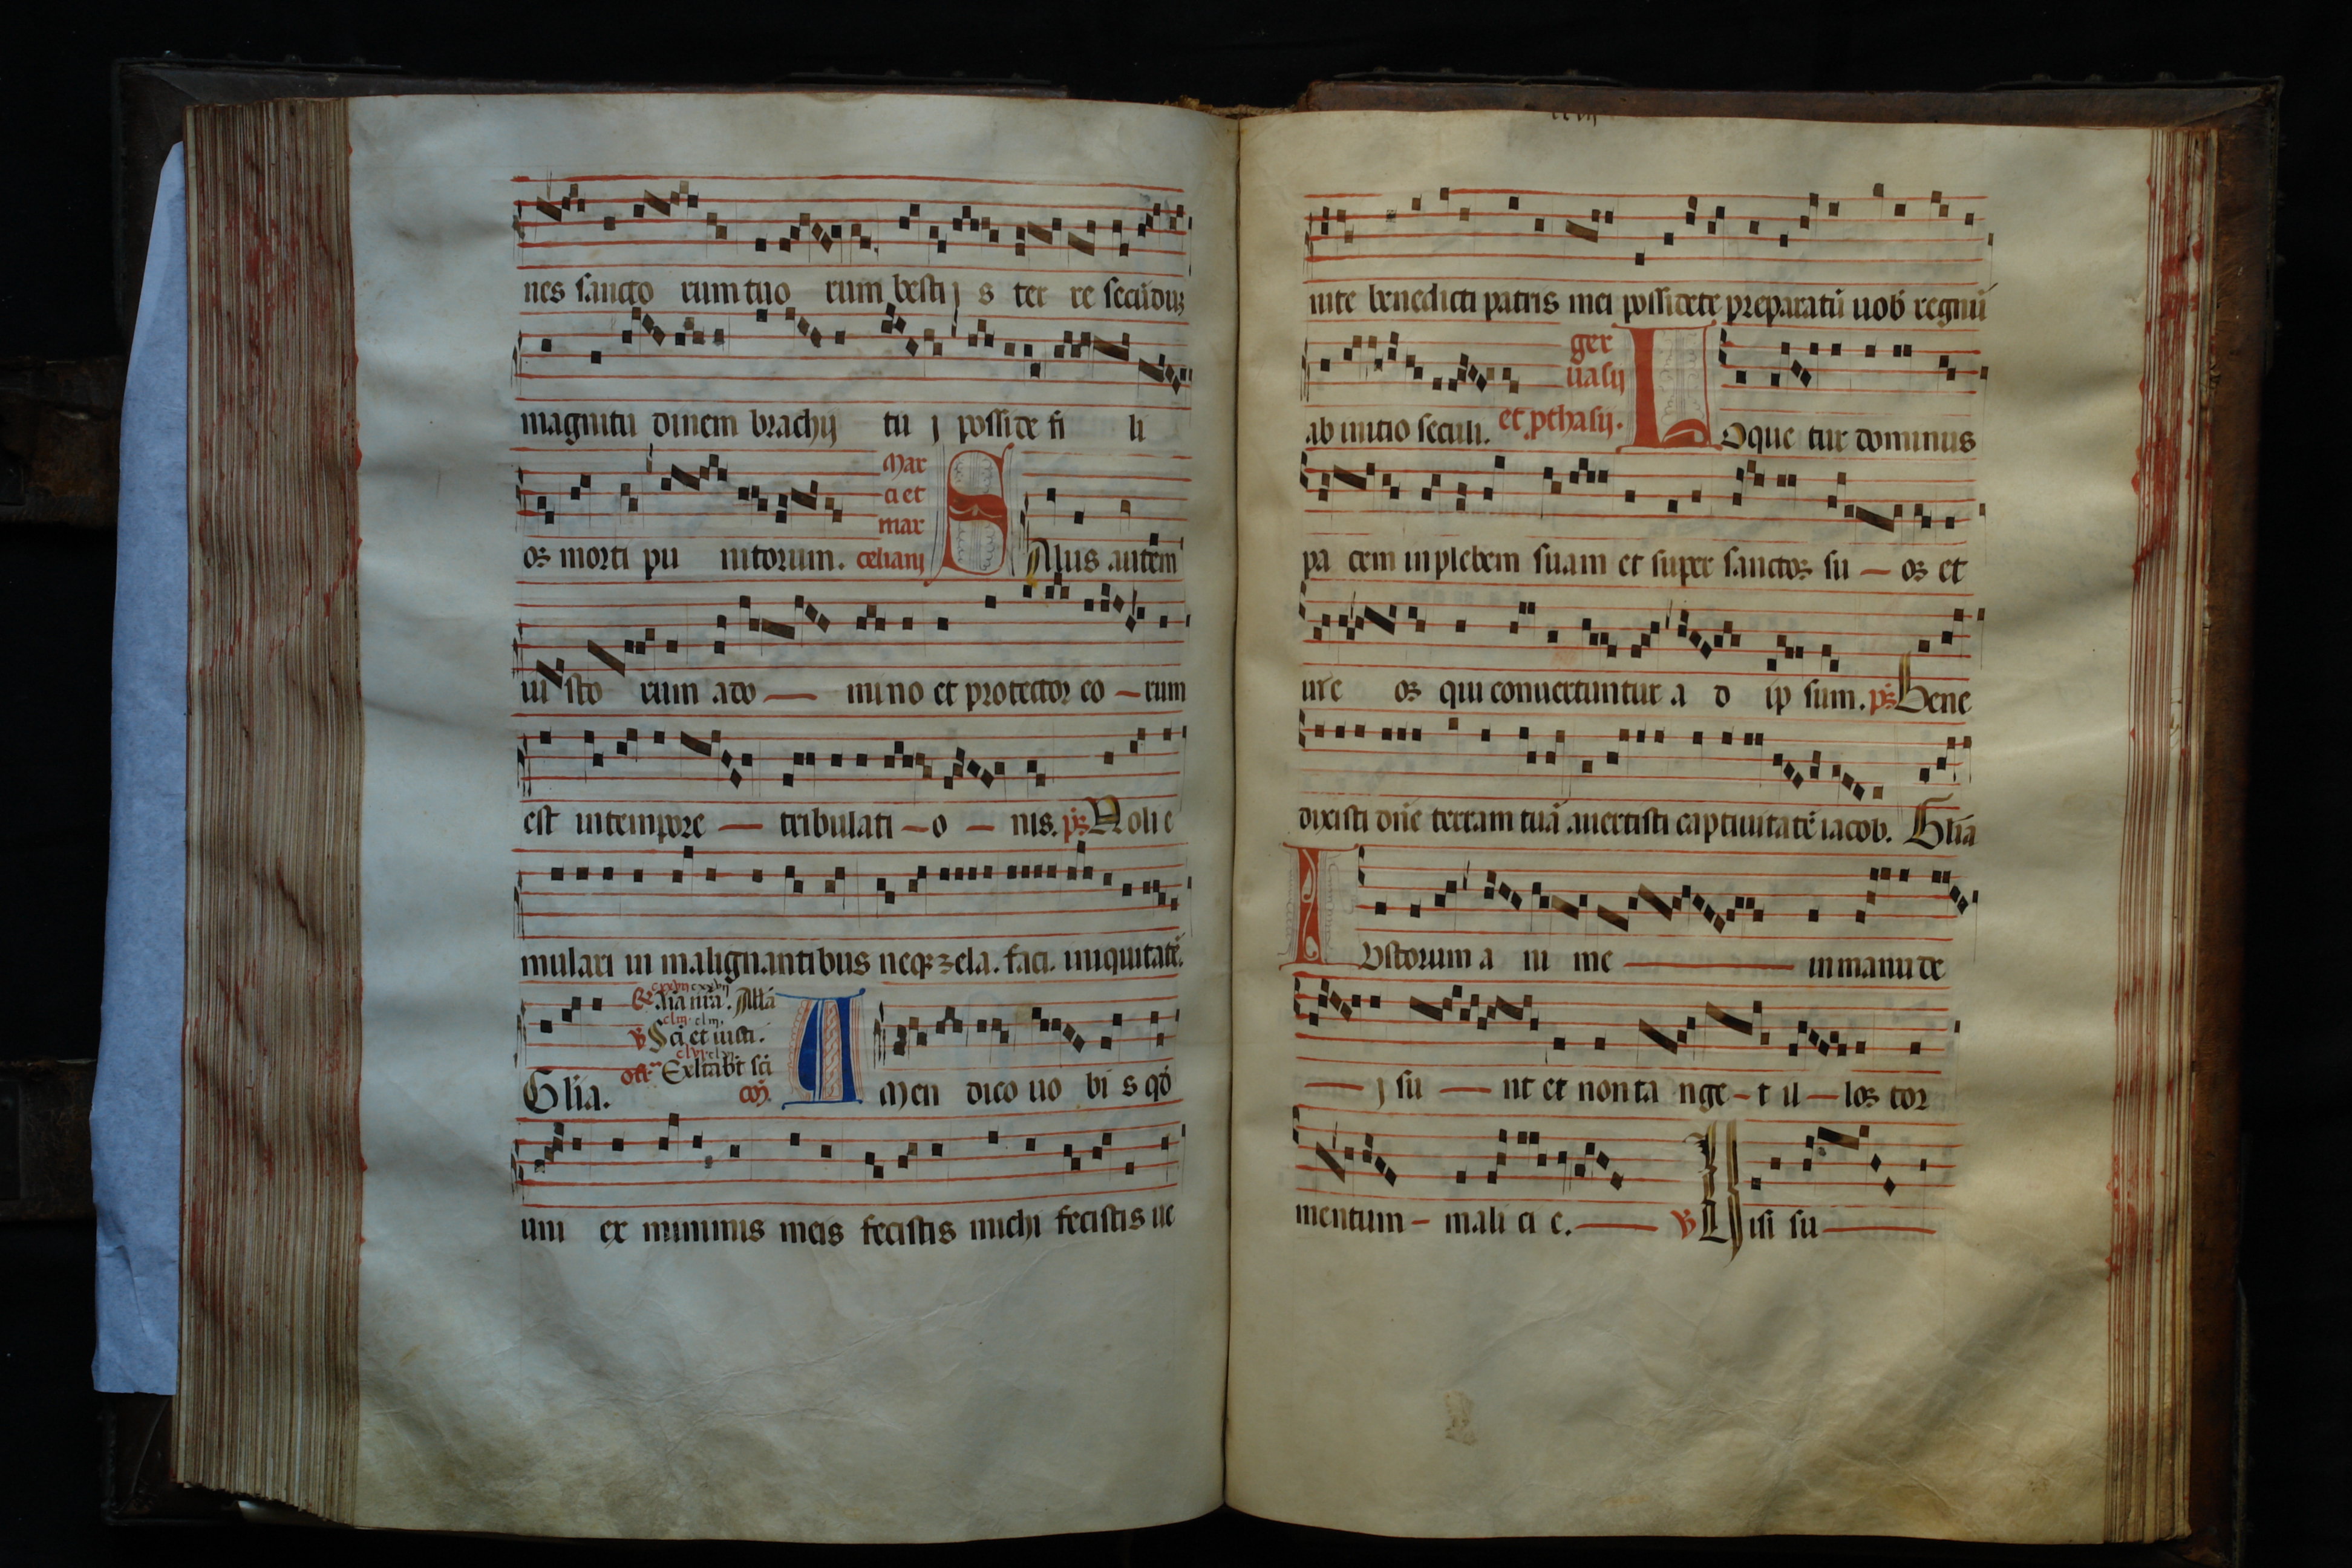 nes sancto rum tuo rum besti j s ter re secūduʒ
magnitu dinem brachij tu j posside fi li
os morti pu nitorum. Mar ci et mar celiani SAlus autem
iu sto rum a do — mi no et protector eo — rum
est in tempore — tribulati — o — nis. ps Nolie
mulari in malignantibus neqʒ zela. faci. iniquitatē.
Glīa.
Aīa nrā. Allā
℣ Sci et iusti.
Exltabt sci
cō. AMen dico uo bi s qd
uni ex minimis meis fecistis michi fecistis ue
nite benedicti patris mei possidete preparatū uob regnū
ab initio seculi. ger uasij et pthasij. LOque tur dominus
pa cem in plebem suam et super sanctos su — os et
in e os qui conuertuntur a d ip sum. ps Bene
dixisti dn̄e terram tuā auertisti captiuitatē iacob. Glīa
IUstorum a ni me — in manu de
— j su — nt et non ta nge — t il — los tor
mentum — mali ci e. — ℣ Uisi su —